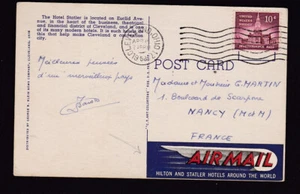 The Hotel Statler is located on Euclid Ave-
nue, in the heart of the business, theatrical,
and financial district of Cleveland, and is one
of its many modern hotels. It is such hotels as
this that help make Cleveland a convention
city.
Meilleures pensées
d'un merveilleux pays
UNITED STATES POSTAGE
10¢
POST CARD
Madame et Monsieur G. MARTIN
1, Boulevard de Scarpone
NANCY (M&M)
FRANCE
AIRMAIL
HILTON AND STATLER HOTELS AROUND THE WORLD